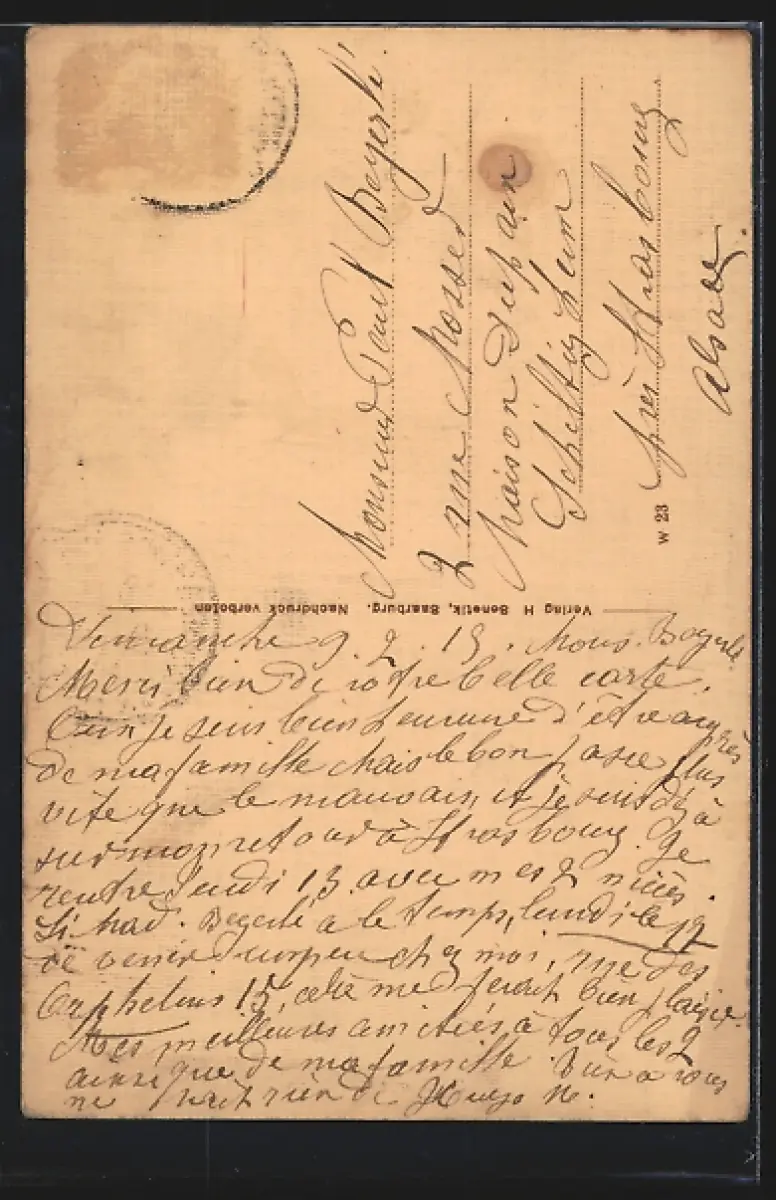 Monsieur Paul Beyerlé
2 rue
Maison
Schiltigheim
près Strasbourg
Alsace.
W 23
Verlag H Benetik, Saarburg. Nachdruck verboten
Dimanche 9. 2. 13. Mons. Beyerlé
Merci bien de votre belle carte.
Oui je suis bien heureuse d'être auprès
de ma famille Mais le bon passe plus
vite que le mauvais, et je suis déjà
sur mon retour à Strasbourg. Je
rentre Jeudi 13. avec mes 2 nièces.
Si Mad. Beyerlé a le temps, lundi le 17
de venir un peu chez moi, rue des
Orphelins 15, cela me ferait bien plaisir.
Mes meilleures amitiés à tous les 2
ainsi que de ma famille. Bien à vous
ne rien de